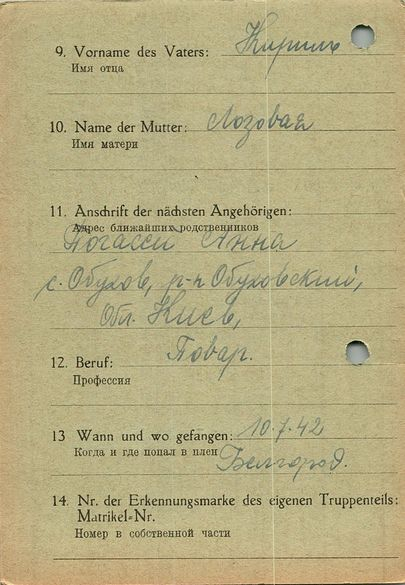 9. Vorname des Vaters: Кирило
Имя отца
10. Name der Mutter: Лозовая
Имя матери
11. Anschrift der nächsten Angehörigen:
Адрес ближайших родственников
Анна
с. Обухов, р-н Обуховский,
Обл. Киев,
12. Beruf: Повар.
Профессия
13 Wann und wo gefangen: 10.7.42
Когда и где попал в плен Белгород.
14. Nr. der Erkennungsmarke des eigenen Truppenteils:
Matrikel-Nr.
Номер в собственной части